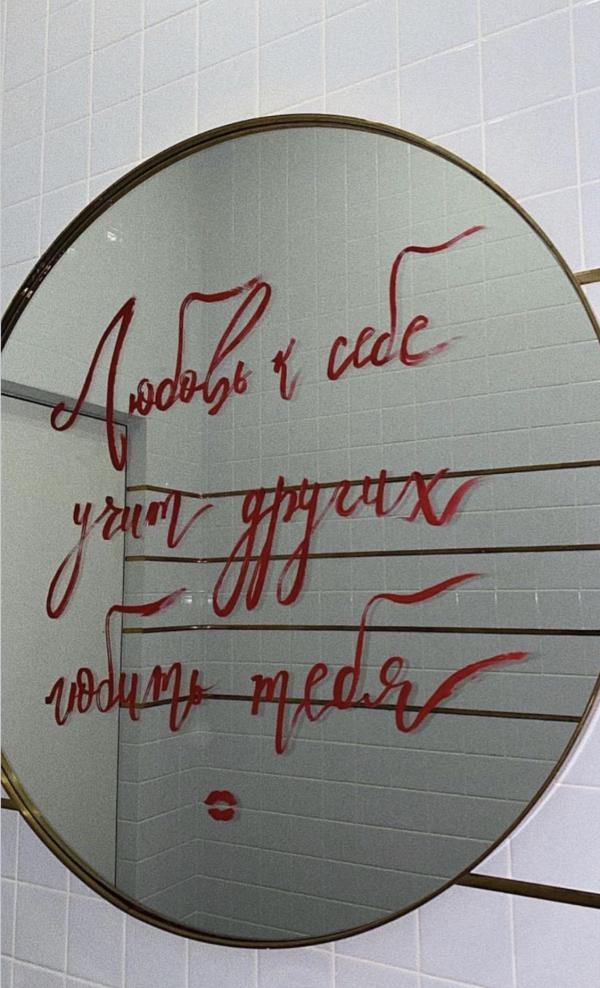 Любовь к себе
учит других
любить тебя